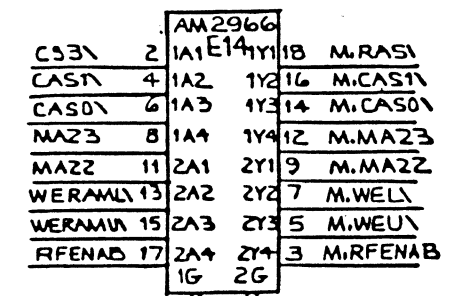 AM2966
E14
CS3\ 2 1A1 1Y1 18 M.RAS\
CAS1\ 4 1A2 1Y2 16 M.CAS1\
CAS0\ 6 1A3 1Y3 14 M.CAS0\
MA23 8 1A4 1Y4 12 M.MA23
MA22 11 2A1 2Y1 9 M.MA22
WERAML\ 13 2A2 2Y2 7 M.WEL\
WERAMU\ 15 2A3 2Y3 5 M.WEU\
RFENAB 17 2A4 2Y4 3 M.RFENAB
1G 2G